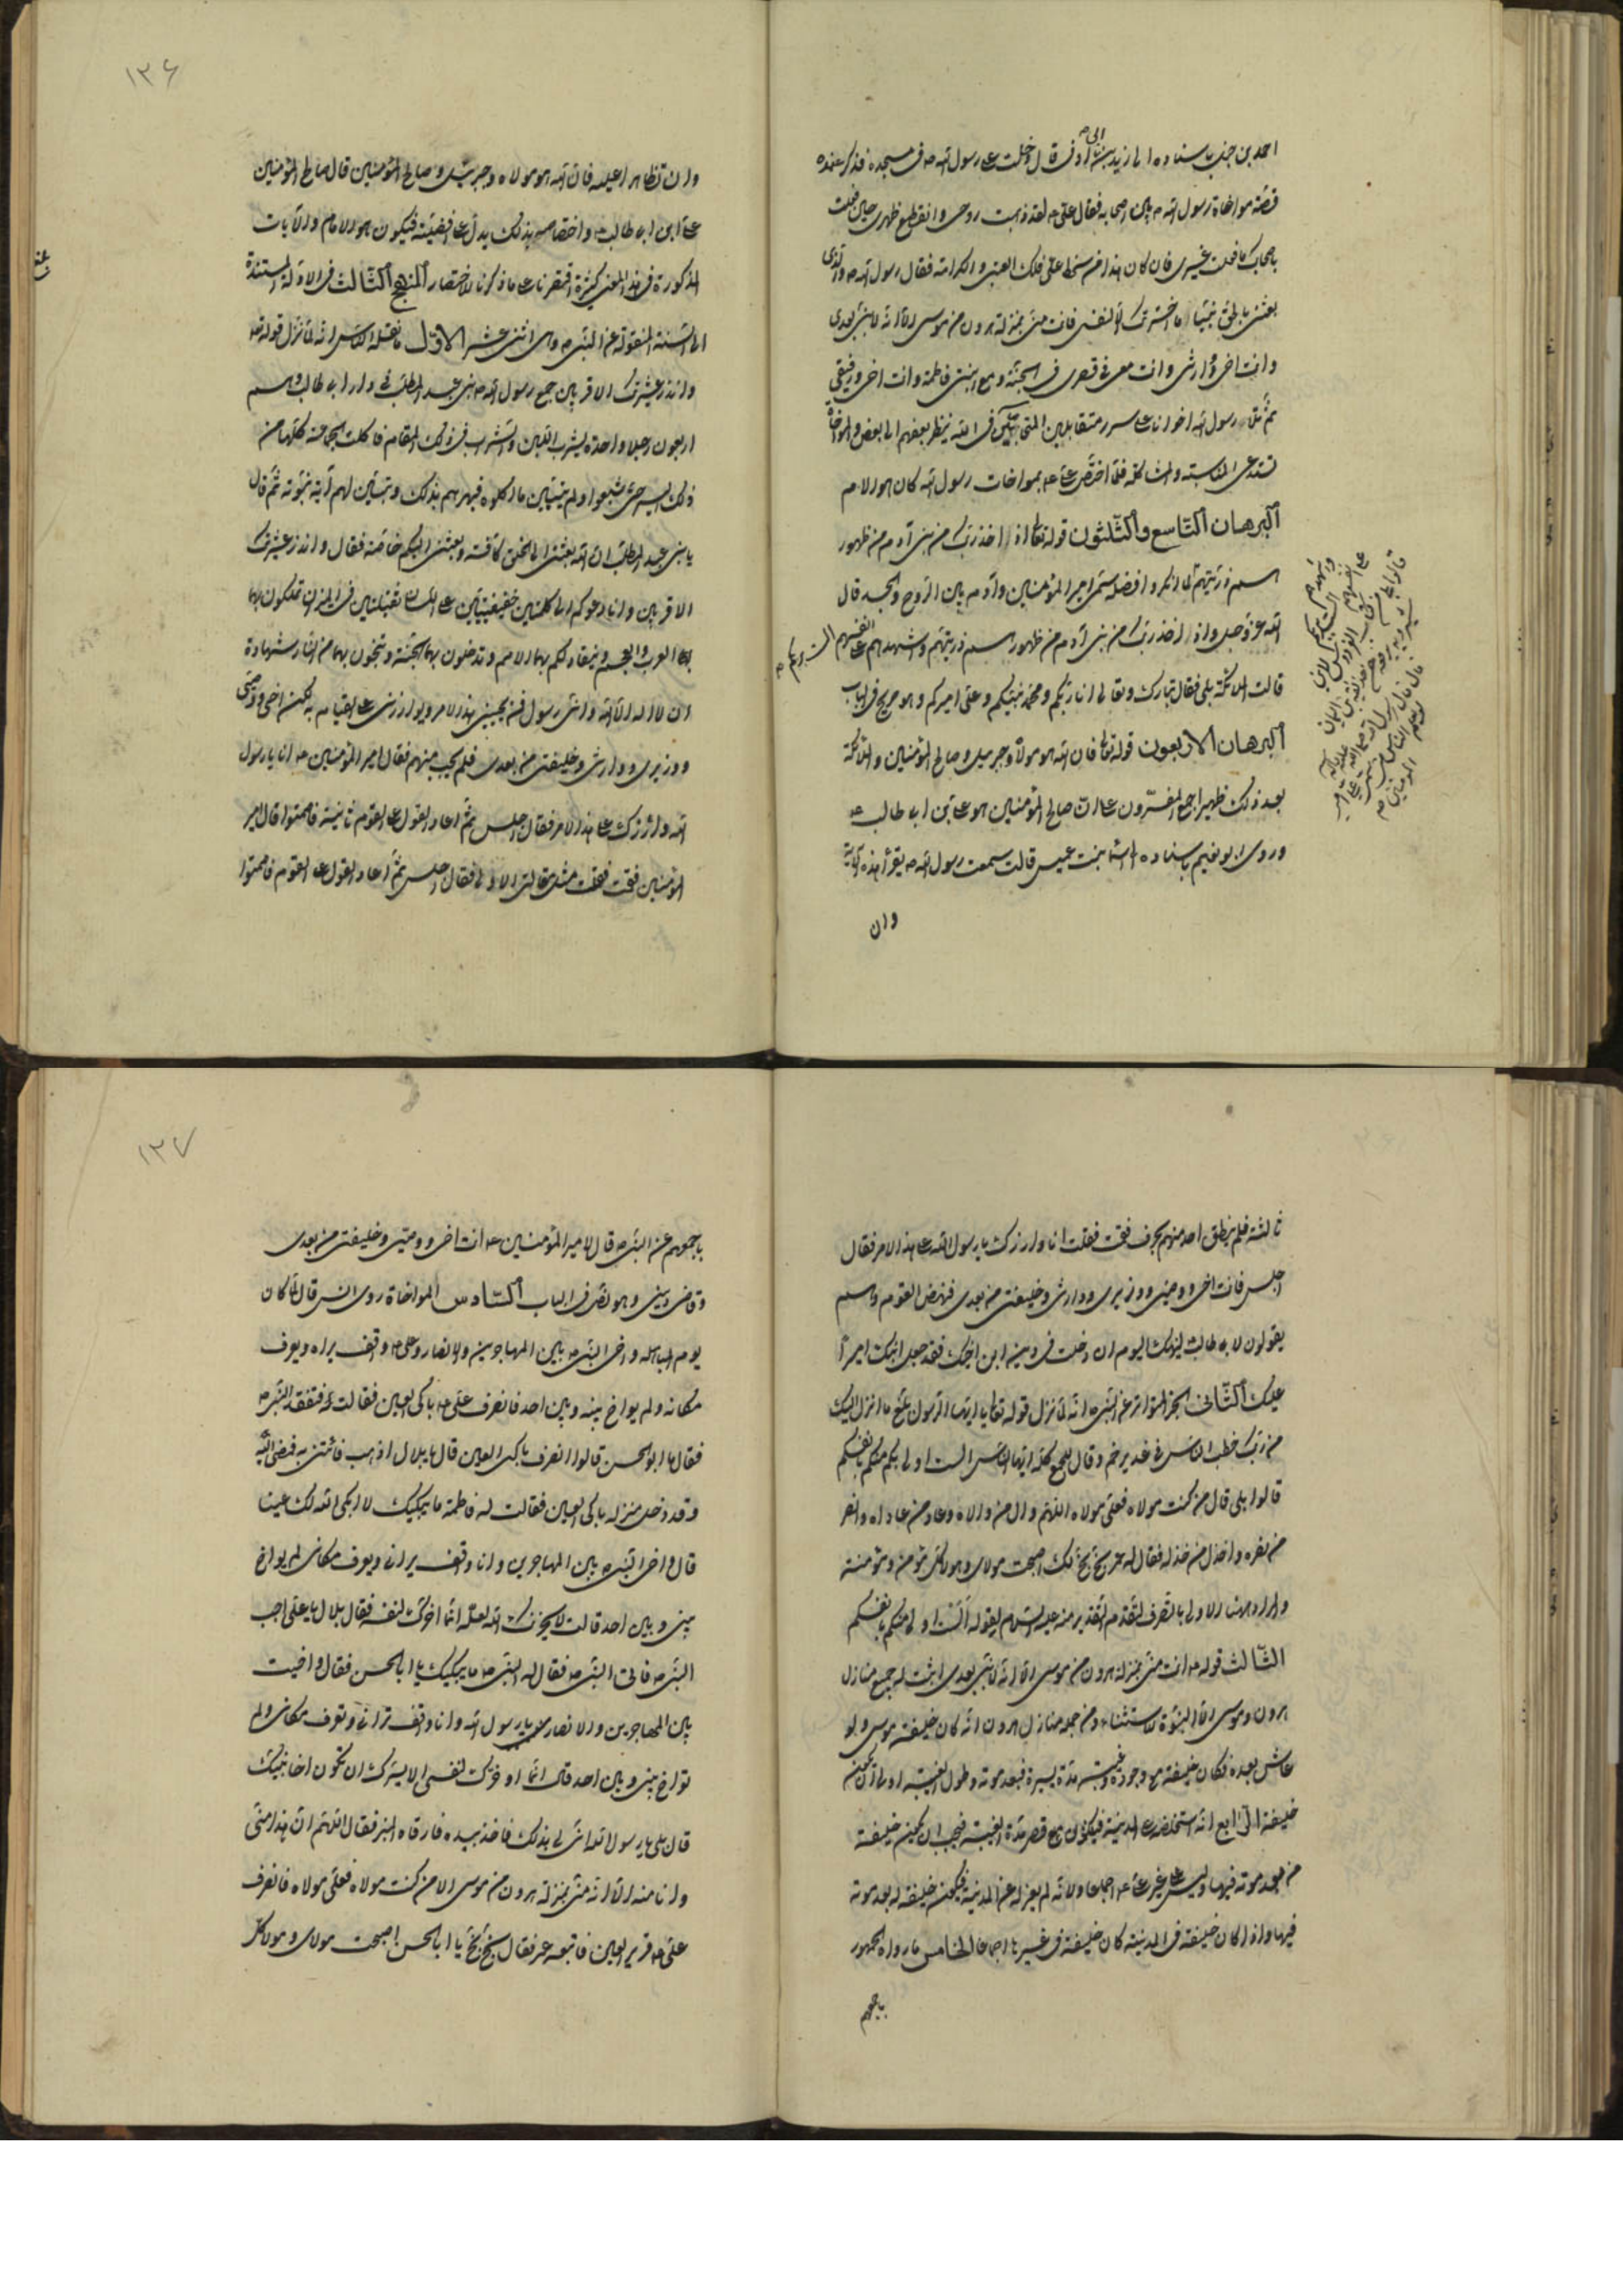 احمد بن حنبل باسناده الى زيد بن ابى اوفى قال دخلت على رسول الله ص فى مسجده فذكر عنده
قصة مواخاة رسول الله ص بين اصحابه فقال على ع لقد ذهبت روحى وانقطع ظهرى حين فعلت
باصحابك ما فعلت غيرى فان كان هذا من سخط على فلك العتبى والكرامة فقال رسول الله ص والذى
بعثنى بالحق نبيا ما اخترتك الا لنفسى فانت منى بمنزلة هرون من موسى الا انه لا نبى بعدى
وانت اخى ووارثى وانت معى فى قصرى فى الجنة ومع ابنتى فاطمة وانت اخى ورفيقى
ثم تلا رسول الله اخوانا على سرر متقابلين المتحابين فى الله ينظر بعضهم الى بعض والمواخاة
تستدعى المناسبة والمشاكلة فلما اختص على ع بمواخات رسول الله كان هو الامام
البرهان التاسع والثلثون قوله تعالى واذ اخذ ربك من بنى آدم من ظهور
سمى امير المؤمنين وآدم بين الروح والجسد قال
الله عز وجل واذ اخذ ربك من بنى آدم من ظهورهم ذريتهم واشهدهم على انفسهم الست بربكم
قالت الملائكة بلى فقال تبارك وتعالى انا ربكم ومحمد نبيكم وعلى اميركم وهو صريح فى الباب
البرهان الاربعون قوله تعالى فان الله هو مولاه وجبريل وصالح المؤمنين والملائكة
بعد ذلك ظهير اجمع المفسرون على ان صالح المؤمنين هو على بن ابى طالب ع
وروى ابو نعيم باسناده اسما بنت عميس قالت سمعت رسول الله ص يقرأ هذه الآية
وان
١٣۶
وان تظاهرا عليه فان الله هو مولاه وجبرئيل وصالح المؤمنين قال صالح المؤمنين
على بن ابى طالب ع واختصاصه بذلك يدل على افضليته فيكون هو الامام والآيات
المذكورة فى هذا المعنى كثيرة اقتصرنا على ما ذكرنا للاختصار المنهج الثالث فى الادلة المستندة
الى السنة المنقولة عن النبى ص وهى اثنى عشر الاول ما نقله الناس انه لما نزل قوله تعالى
وانذر عشيرتك الاقربين جمع رسول الله ص بنى عبد المطلب فى دار ابى طالب وهم
اربعون رجلا
ذلك اليسير حتى شبعوا ولم يتبين ما اكلوه فبهرهم بذلك وتبين لهم آية نبوته ثم قال
يا بنى عبد المطلب ان الله بعثنى الى الخلق كافة وبعثنى اليكم خاصة فقال وانذر عشيرتك
الاقربين وانا ادعوكم الى كلمتين خفيفتين على اللسان ثقيلتين فى الميزان تملكون بها
بها العرب والعجم وينقاد لكم بهما الامم وتدخلون بهما الجنة وتنجون بهما من النار شهادة
ان لا اله الا الله وانى رسول الله فمن يجيبنى هذا الامر ويوازرنى على القيام به يكن اخى ووصيى
ووزيرى ووارثى وخليفتى من بعدى فلم يجب منهم فقال امير المؤمنين ع انا يا رسول
الله اوازرك على هذا الامر فقال اجلس ثم اعاد القول على القوم ثانية فاصمتوا قال امير
المؤمنين فقمت فقلت مثل مقالتى الاولى فقال اجلس ثم اعاد القول على القوم فاصمتوا
ثالثة فلم ينطق احد منهم بحرف فقمت فقلت انا اوازرك يا رسول الله على هذا الامر فقال
اجلس فانت اخى ووصيى ووزيرى ووارثى وخليفتى من بعدى فنهض القوم وهم
يقولون لابى طالب ليهنك اليوم ان دخلت فى دين ابن اخيك فقد جعل ابنك اميرا
عليك الثانى الخبر المتواتر عن النبى ص انه لما نزل قوله تعالى يا ايها الرسول بلغ ما انزل اليك
من ربك خطب الناس فى غدير خم وقال للجمع كله ايها الناس الست اولى بكم منكم بانفسكم
قالوا بلى قال من كنت مولاه فعلى مولاه اللهم وال من والاه وعاد من عاداه وانصر
من نصره واخذل من خذله فقال له عمر بخ بخ لك اصبحت مولاى ومولى كل مؤمن ومؤمنة
والمراد هنا الاولى بالتصرف لتقدم التقدير منه عليه السلام بقوله الست اولى منكم بانفسكم
الثالث قوله ص انت منى بمنزلة هرون من موسى الا انه لا نبى بعدى اثبت له جميع منازل
هرون وموسى الا النبوة للاستثناء ومن جملة منازل هرون انه كان خليفة موسى ولو
عاش بعده لكان خليفة مع وجوده وغيبته مدة يسيرة فبعد موته وطول الغيبة اولى ان يكون
خليفة الرابع انه استخلفه على المدينة فيكون مع قصر مدة الغيبة فيجب ان يكون خليفة
من بعد موته فيها وليس غير على ع اجماعا ولانه لم يعزله عن المدينة فيكون خليفة له بعد موته
فيها واذا كان خليفة فى المدينة كان خليفة فى غيرها اجماعا الخامس ما رواه الجمهور
باجمعهم
١٣٧
باجمعهم عن النبى ص قال لامير المؤمنين ع انت اخى ووصيى وخليفتى من بعدى
وقاضى دينى وهو نص فى الباب السادس المواخاة روى انس قال لما كان
يوم المباهلة واخى النبى ص بين المهاجرين والانصار وعلى ع واقف يراه ويعرف
مكانه ولم يواخ بينه وبين احد فانصرف على ع باكى العين فافتقده النبى ص
فقال ما ابو الحسن قالوا انصرف باكى العين قال يا بلال اذهب فائتنى به فمضى اليه
وقد دخل منزله باكى العين فقالت له فاطمة ما يبكيك لا ابكى الله لك عينا
قال واخى النبى ص بين المهاجرين وانا واقف يرانى ويعرف مكانى لم يواخ
بينى وبين احد قالت لا يحزنك الله لعله انما اخرك لنفسه فقال بلال يا على اجب
النبى ص فاتى النبى ص فقال له النبى ص ما يبكيك يا ابا الحسن فقال واخيت
بين المهاجرين والانصار يا رسول الله وانا واقف ترانى وتعرف مكانى ولم
تواخ بينى وبين احد قال انما اخرتك لنفسى الا يسرك ان تكون اخا نبيك
قال بلى يا رسول الله انى لى بذلك فاخذ بيده فارقاه المنبر فقال اللهم ان هذا منى
وانا منه الا انه منى بمنزلة هرون من موسى الا من كنت مولاه فعلى مولاه فانصرف
على ع قرير العين فاتبعه عمر فقال بخ بخ يا ابا الحسن اصبحت مولاى ومولى كل